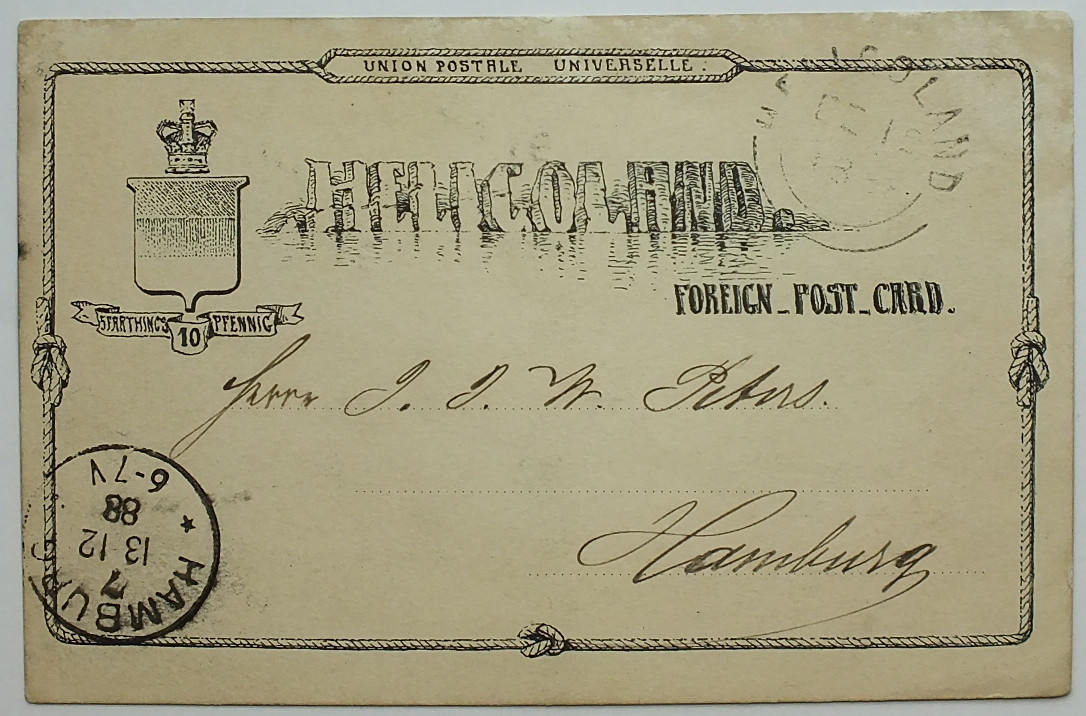 UNION POSTALE UNIVERSELLE.
HELIGOLAND.
FOREIGN_POST_CARD.
5 FARTHINGS 10 PFENNIG
Herrn J. J. W. Peters.
Hamburg
HAMBURG
7
13 12
88
6-7V